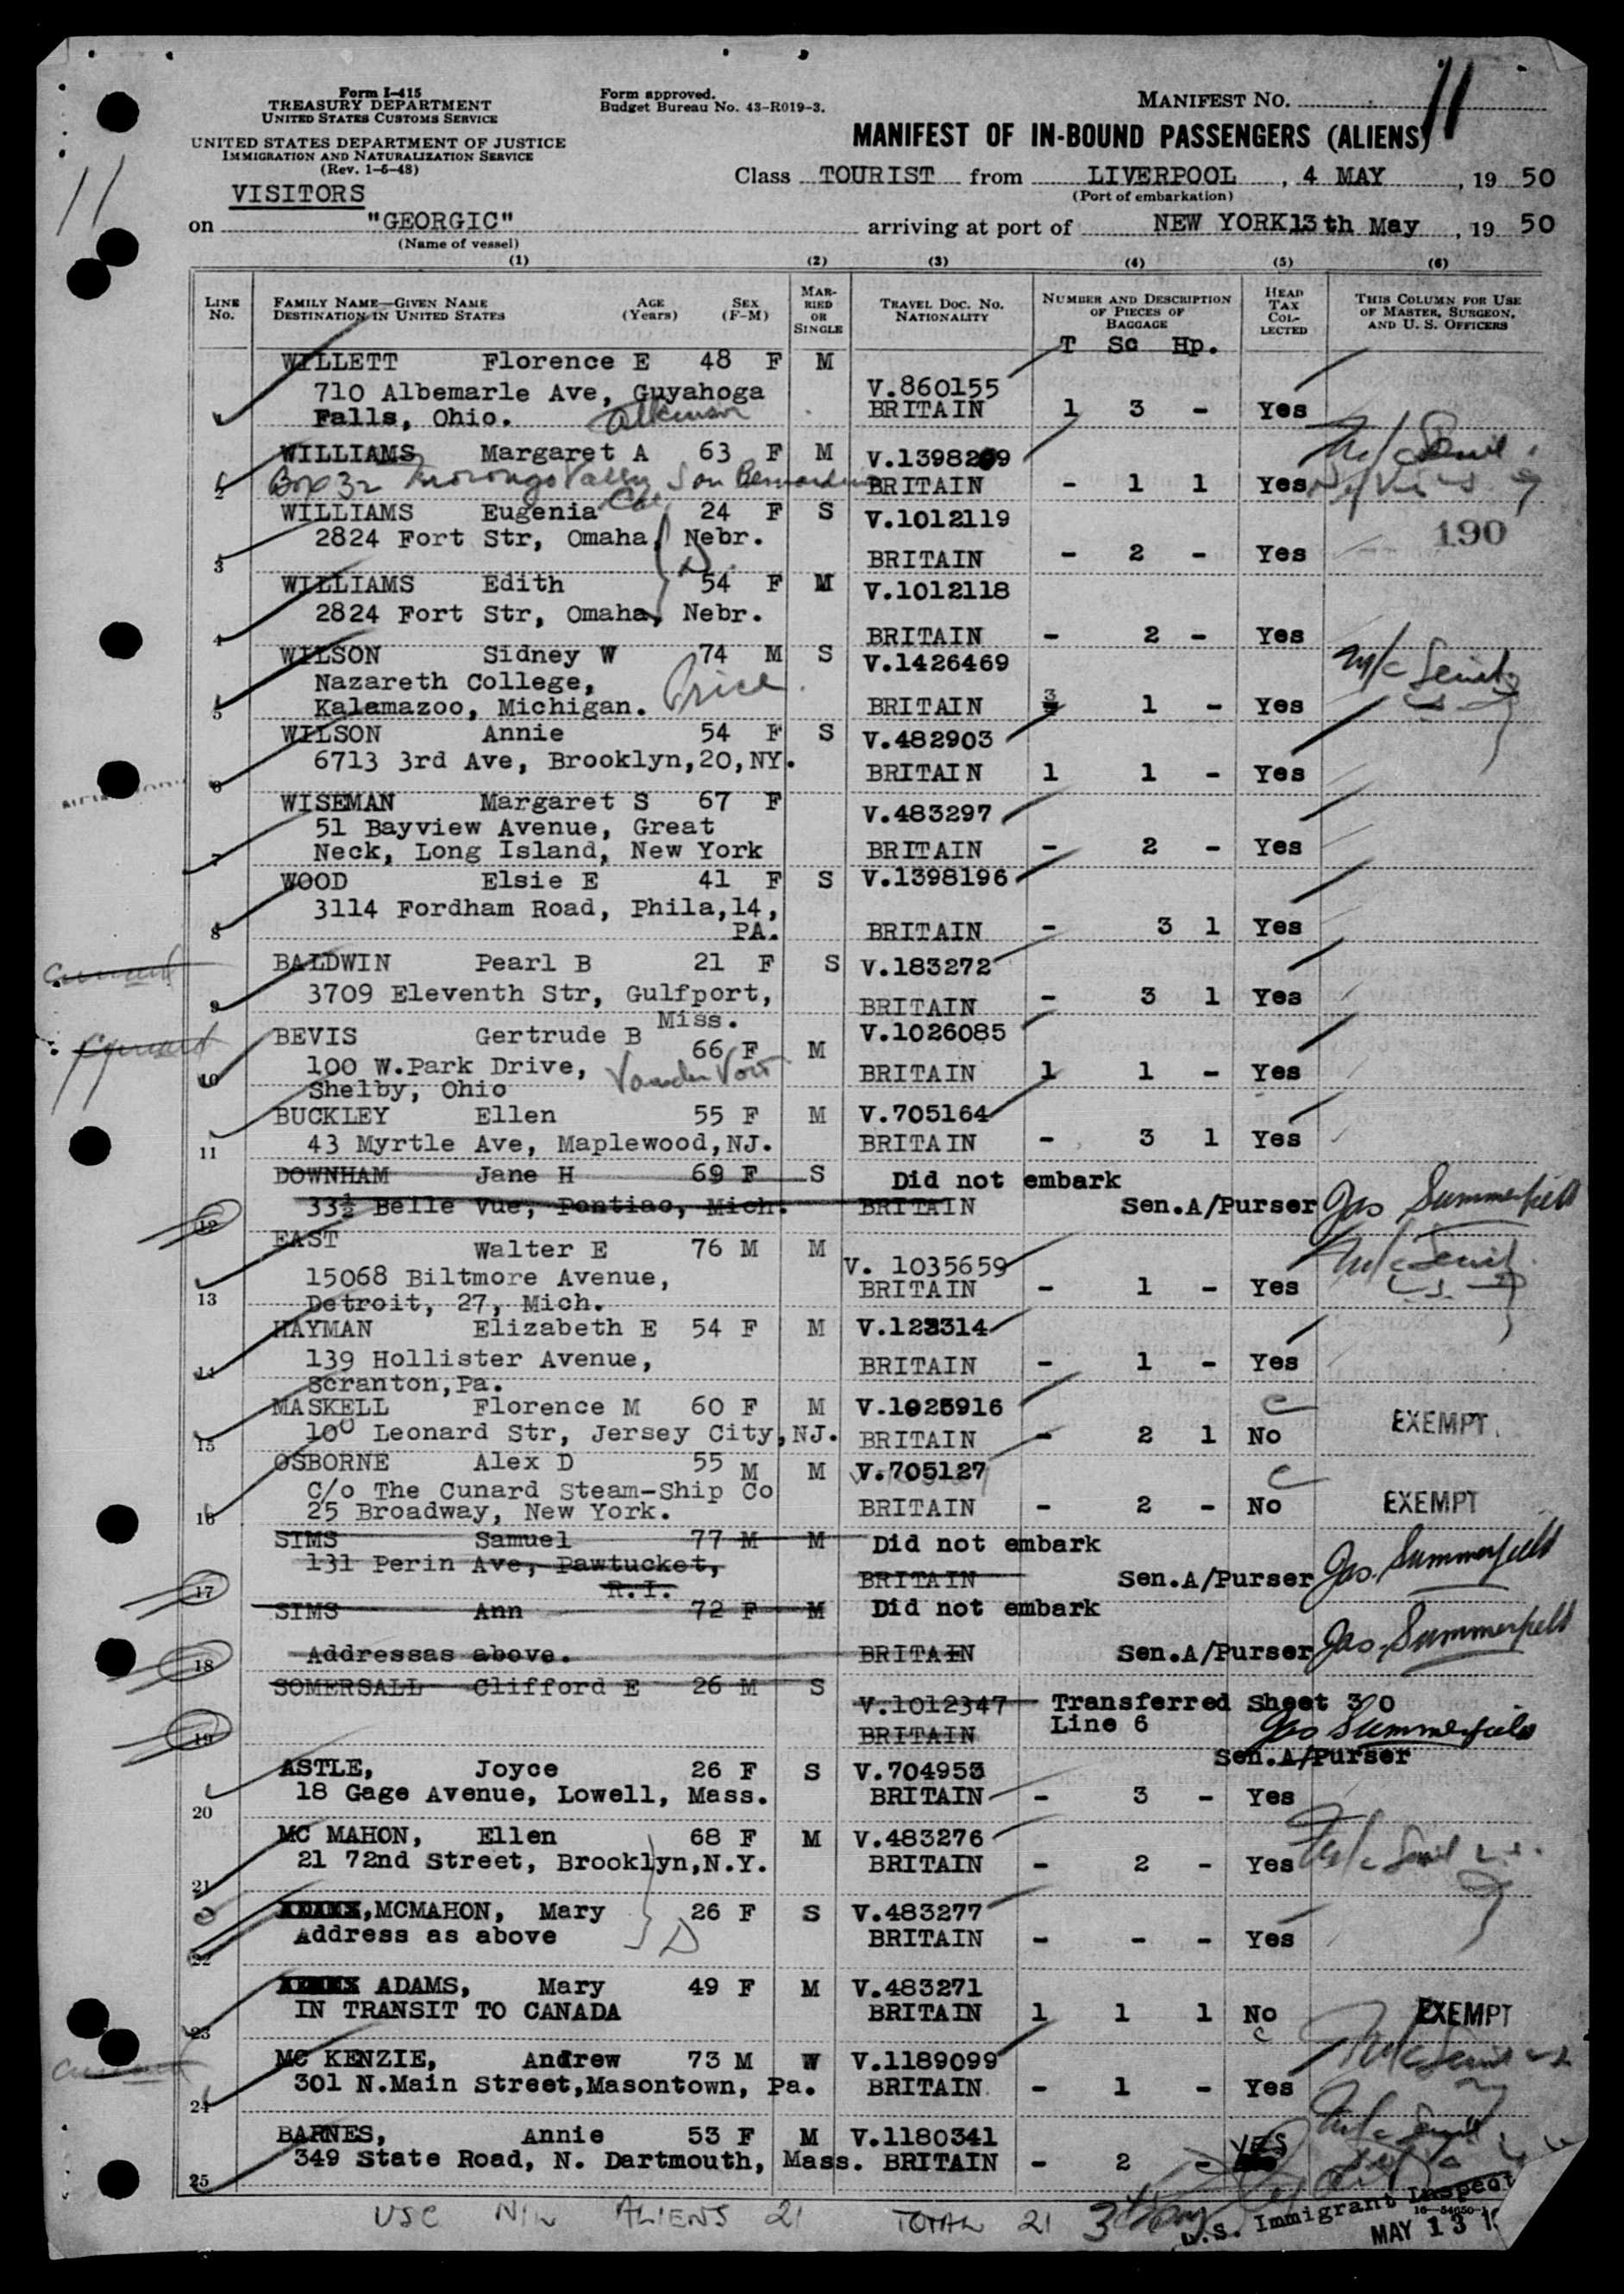 Form I-415
TREASURY DEPARTMENT
UNITED STATES CUSTOMS SERVICE
UNITED STATES DEPARTMENT OF JUSTICE
IMMIGRATION AND NATURALIZATION SERVICE
(Rev. 1-6-48)
Form approved.
Budget Bureau No. 43-R019-3.
MANIFEST NO. 11
MANIFEST OF IN-BOUND PASSENGERS (ALIENS)
11
VISITORS
Class TOURIST from LIVERPOOL, 4 MAY, 19 50
(Port of embarkation)
on "GEORGIC" arriving at port of NEW YORK 13th May, 19 50
(Name of vessel)
(1) (2) (3) (4) (5) (6)
LINE No. FAMILY NAME—GIVEN NAME DESTINATION IN UNITED STATES AGE (Years) SEX (F-M) MARRIED OR SINGLE TRAVEL DOC. No. NATIONALITY NUMBER AND DESCRIPTION OF PIECES OF BAGGAGE HEAD TAX COLLECTED THIS COLUMN FOR USE OF MASTER, SURGEON, AND U. S. OFFICERS
T Sc Hp.
WILLETT Florence E 48 F M V.860155
710 Albemarle Ave, Guyahoga
Falls, Ohio. Atkinson BRITAIN 1 3 - Yes
WILLIAMS Margaret A 63 F M V.1398209
2 Box 32 Morongo Valley San Bernardino Cal BRITAIN - 1 1 Yes
WILLIAMS Eugenia 24 F S V.1012119 190
2824 Fort Str, Omaha, Nebr.
3 BRITAIN - 2 - Yes
WILLIAMS Edith 54 F M V.1012118
2824 Fort Str, Omaha, Nebr.
4 BRITAIN - 2 - Yes
WILSON Sidney W 74 M S V.1426469
Nazareth College, Price
5 Kalamazoo, Michigan. BRITAIN 3 1 - Yes
WILSON Annie 54 F S V.482903
6 6713 3rd Ave, Brooklyn,20,NY. BRITAIN 1 1 - Yes
WISEMAN Margaret S 67 F V.483297
51 Bayview Avenue, Great
7 Neck, Long Island, New York BRITAIN - 2 - Yes
WOOD Elsie E 41 F S V.1398196
3114 Fordham Road, Phila,14,
8 PA. BRITAIN - 3 1 Yes
Cunard
BALDWIN Pearl B 21 F S V.183272
9 3709 Eleventh Str, Gulfport, Miss. BRITAIN - 3 1 Yes
Cunard
BEVIS Gertrude B 66 F M V.1026085
10 100 W.Park Drive, Vander Vort BRITAIN 1 1 - Yes
Shelby, Ohio
BUCKLEY Ellen 55 F M V.705164
11 43 Myrtle Ave, Maplewood,NJ. BRITAIN - 3 1 Yes
DOWNHAM Jane H 69 F S Did not embark
12 33½ Belle Vue, Pontiac, Mich. BRITAIN Sen.A/Purser Jas Summerfield
EAST Walter E 76 M M V. 1035659
15068 Biltmore Avenue,
13 Detroit, 27, Mich. BRITAIN - 1 - Yes
HAYMAN Elizabeth E 54 F M V.123314
14 139 Hollister Avenue, BRITAIN - 1 - Yes
Scranton,Pa.
MASKELL Florence M 60 F M V.1025916 EXEMPT
15 100 Leonard Str, Jersey City,NJ. BRITAIN - 2 1 No
OSBORNE Alex D 55 M M V.705127
C/o The Cunard Steam-Ship Co
16 25 Broadway, New York. BRITAIN - 2 - No EXEMPT
SIMS Samuel 77 M M Did not embark
131 Perin Ave, Pawtucket,
17 R.I. BRITAIN Sen.A/Purser Jas. Summerfield
SIMS Ann 72 F M Did not embark
18 Addressas above. BRITAIN Sen.A/Purser Jas. Summerfield
SOMERSALL Clifford E 26 M S V.1012347 Transferred Sheet 30
19 BRITAIN Line 6 Jas Summerfield
Sen.A/Purser
ASTLE, Joyce 26 F S V.704953
20 18 Gage Avenue, Lowell, Mass. BRITAIN - 3 - Yes
MC MAHON, Ellen 68 F M V.483276
21 21 72nd Street, Brooklyn,N.Y. BRITAIN - 2 - Yes
MCMAHON, Mary 26 F S V.483277
22 Address as above BRITAIN - - - Yes
ADAMS, Mary 49 F M V.483271
23 IN TRANSIT TO CANADA BRITAIN 1 1 1 No EXEMPT
Cunard
MC KENZIE, Andrew 73 M W V.1189099
24 301 N.Main Street,Masontown, Pa. BRITAIN - 1 - Yes
BARNES, Annie 53 F M V.1180341
25 349 State Road, N. Dartmouth, Mass. BRITAIN - 2 - YES
USC NIL ALIENS 21 TOTAL 21
U.S. Immigrant Inspect
MAY 13 1